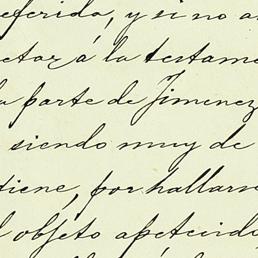 eferida, y si no a
ector á la testame
a parte de Jimenez
siendo muy de
tiene, por hallars
l objeto apetecido